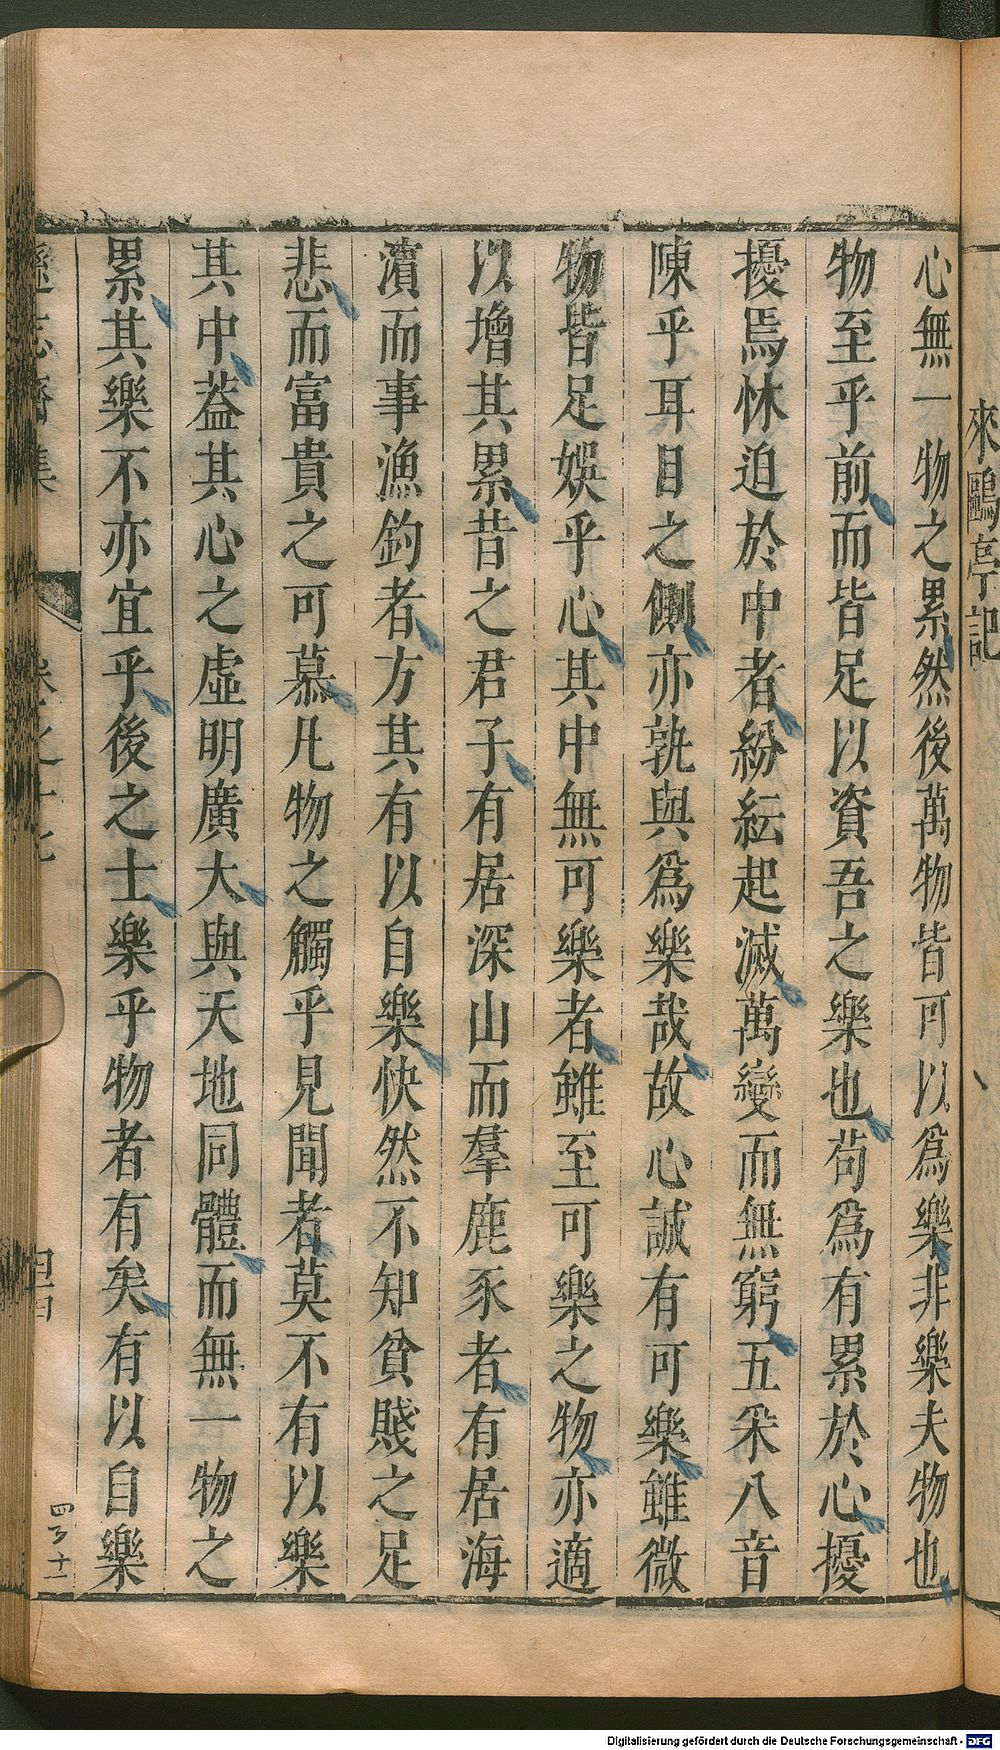 來鷗亭記
心無一物之累然後萬物皆可以爲樂非樂夫物也
物至乎前而皆足以資吾之樂也茍爲有累於心擾
擾焉怵迫於中者紛紜起滅萬變而無窮五采八音
陳乎耳目之側亦孰與爲樂哉故心誠有可樂雖微
物皆足娛乎心其中無可樂者雖至可樂之物亦適
以增其累昔之君子有居深山而羣鹿豕者有居海
瀆而事漁釣者方其有以自樂快然不知貧賤之足
悲而富貴之可慕凡物之觸乎見聞者莫不有以樂
其中葢其心之虛明廣大與天地同體而無一物之
累其樂不亦宜乎後之士樂乎物者有矣有以自樂
遜志齋集
卷之十七
四百十一
Digitalisierung gefördert durch die Deutsche Forschungsgemeinschaft - DFG